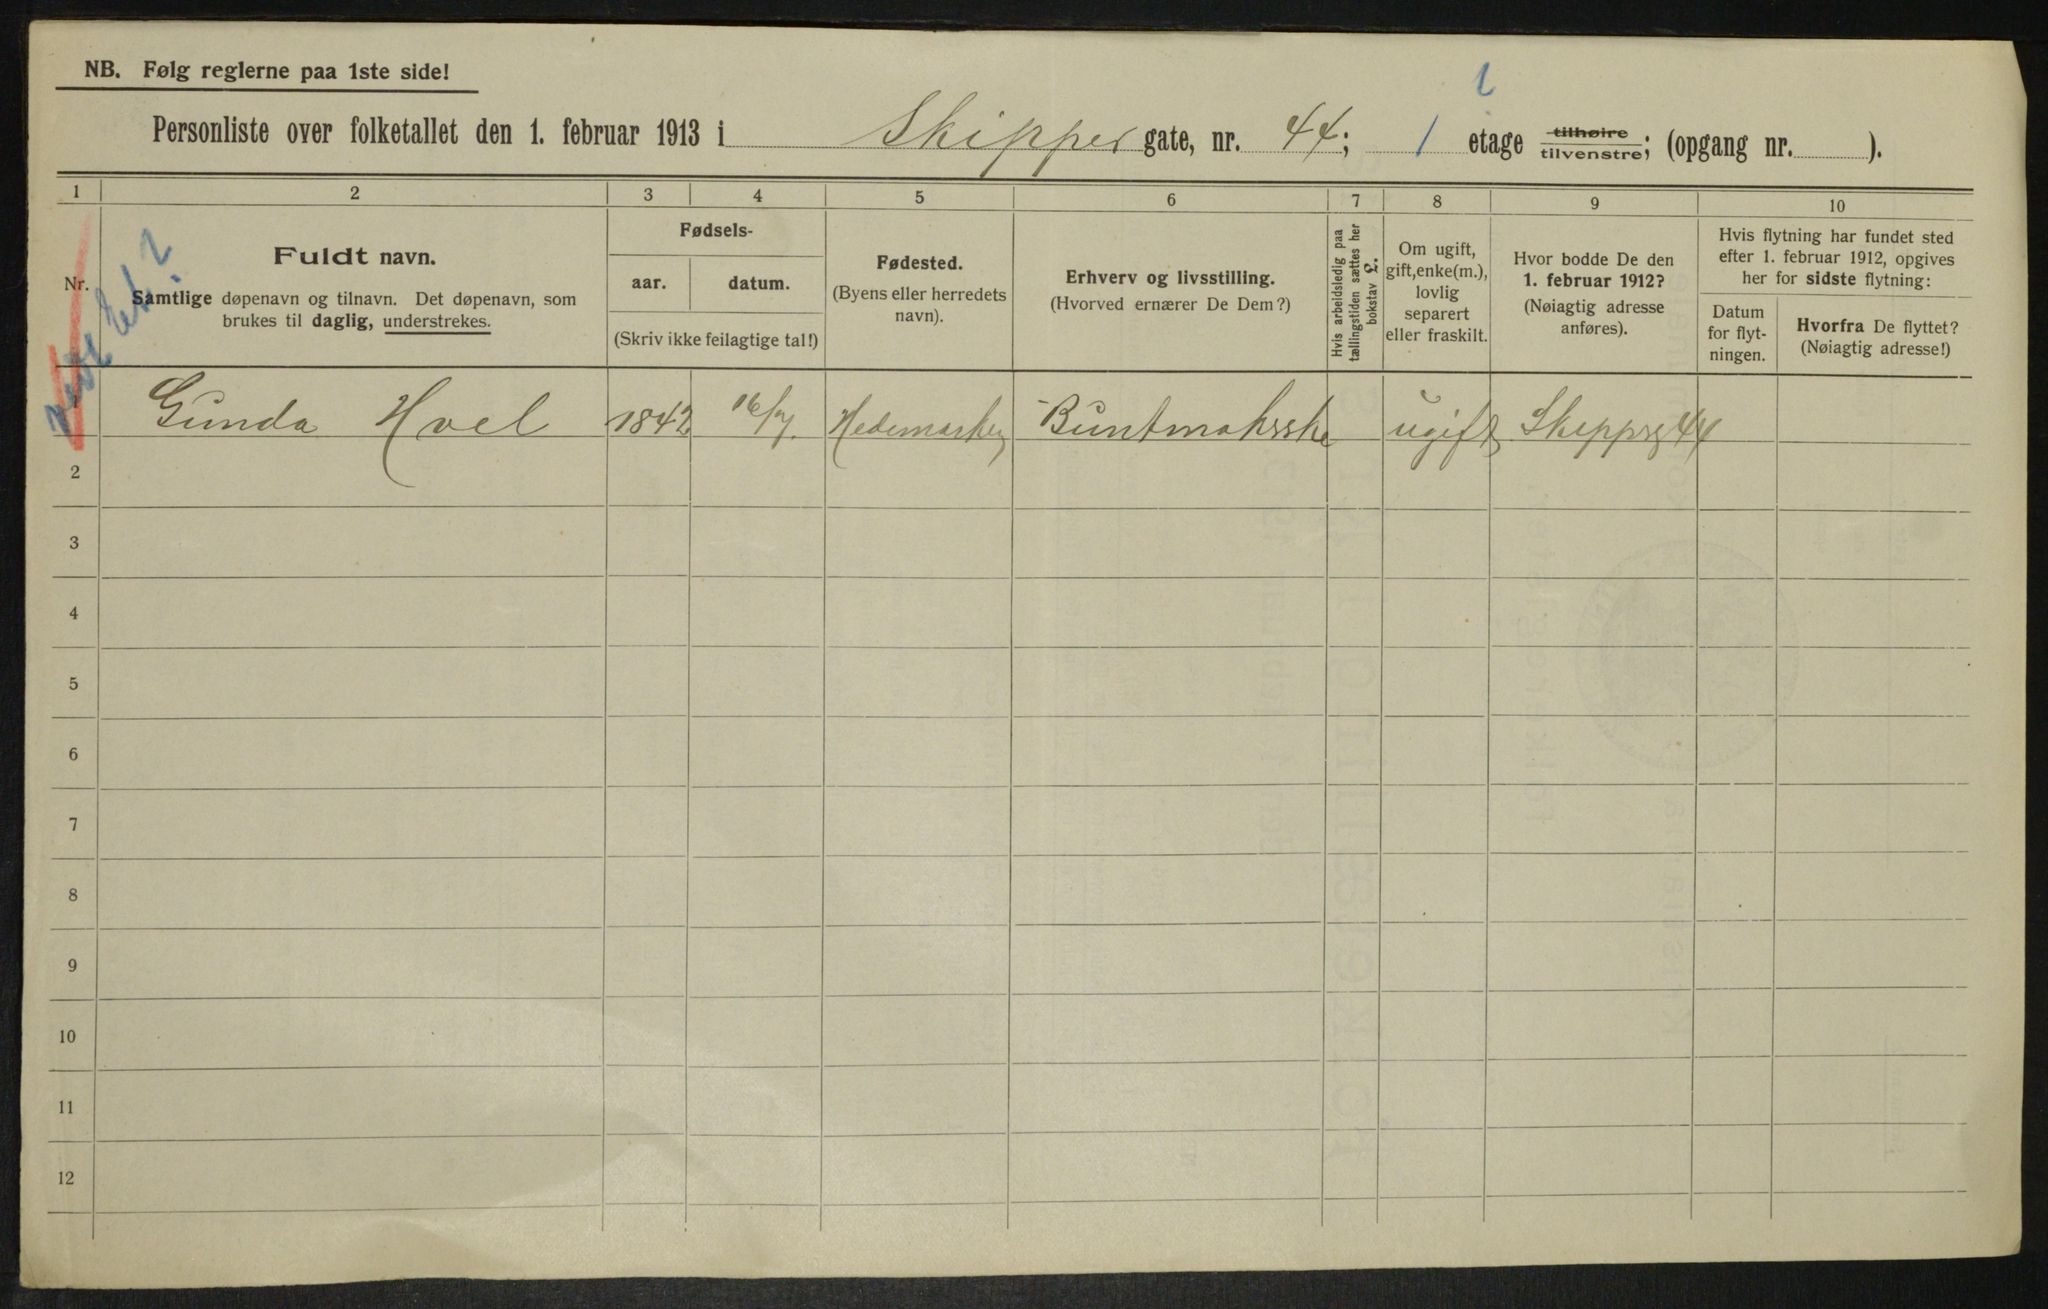 NB. Følg reglerne paa 1ste side!
Personliste over folketallet den 1. februar 1913 i Skipper gate, nr. 44; 1 etage tilhøire tilvenstre; (opgang nr. ).
1 2 3 4 5 6 7 8 9 10
Nr.
Fuldt navn.
Samtlige døpenavn og tilnavn. Det døpenavn, som
brukes til daglig, understrekes.
Fødsels-
aar. datum.
(Skriv ikke feilagtige tal!)
Fødested.
(Byens eller herredets
navn).
Erhverv og livsstilling.
(Hvorved ernærer De Dem?)
Hvis arbeidsledig paa
tællingstiden sættes her
bokstav L.
Om ugift,
gift, enke(m.),
lovlig
separert
eller fraskilt.
Hvor bodde De den
1. februar 1912?
(Nøiagtig adresse
anføres).
Hvis flytning har fundet sted
efter 1. februar 1912, opgives
her for sidste flytning:
Datum
for flyt-
ningen.
Hvorfra De flyttet?
(Nøiagtig adresse!)
1 Gunda Hvel 1842 16/7. Hedemarken Buntmakerske ugift Skipperg 44
2
3
4
5
6
7
8
9
10
11
12